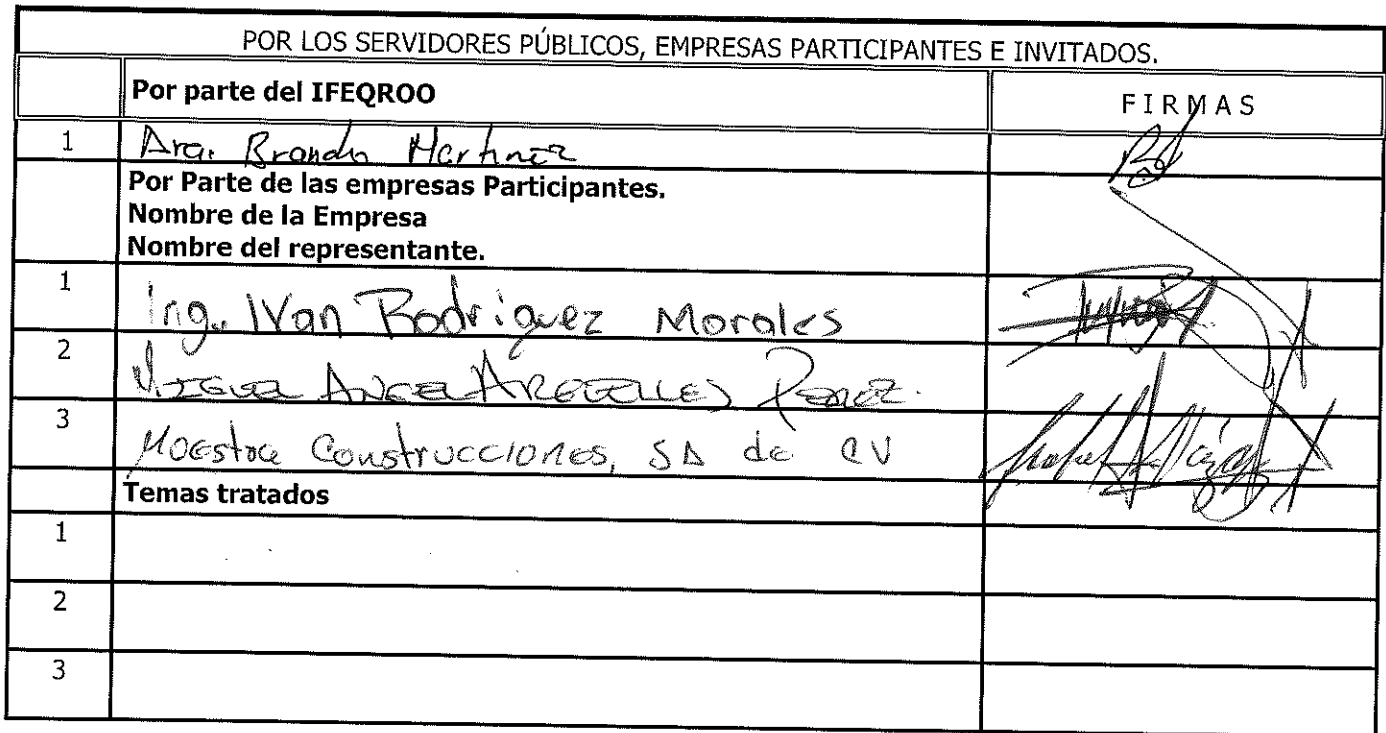 POR LOS SERVIDORES PÚBLICOS, EMPRESAS PARTICIPANTES E INVITADOS.
Por parte del IFEQROO FIRMAS
1 Arq. Brando Martinez
Por Parte de las empresas Participantes.
Nombre de la Empresa
Nombre del representante.
1 Ing. Ivan Rodriguez Morales
2 MIGUEL ANGEL ARGUELLES PEREZ.
3 Construcciones, SA de CV
Temas tratados
1
2
3